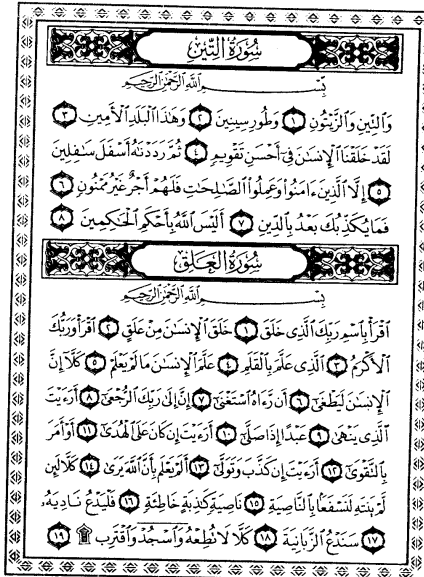 سُورَةُ التِّينِ
بِسْمِ اللَّهِ الرَّحْمَٰنِ الرَّحِيمِ
وَالتِّينِ وَالزَّيْتُونِ ١ وَطُورِ سِينِينَ ٢ وَهَٰذَا الْبَلَدِ الْأَمِينِ ٣
لَقَدْ خَلَقْنَا الْإِنسَٰنَ فِىٓ أَحْسَنِ تَقْوِيمٍ ٤ ثُمَّ رَدَدْنَٰهُ أَسْفَلَ سَٰفِلِينَ
٥ إِلَّا الَّذِينَ ءَامَنُوا وَعَمِلُوا الصَّٰلِحَٰتِ فَلَهُمْ أَجْرٌ غَيْرُ مَمْنُونٍ ٦
فَمَا يُكَذِّبُكَ بَعْدُ بِالدِّينِ ٧ أَلَيْسَ اللَّهُ بِأَحْكَمِ الْحَٰكِمِينَ ٨
سُورَةُ الْعَلَقِ
بِسْمِ اللَّهِ الرَّحْمَٰنِ الرَّحِيمِ
اقْرَأْ بِاسْمِ رَبِّكَ الَّذِى خَلَقَ ١ خَلَقَ الْإِنسَٰنَ مِنْ عَلَقٍ ٢ اقْرَأْ وَرَبُّكَ
الْأَكْرَمُ ٣ الَّذِى عَلَّمَ بِالْقَلَمِ ٤ عَلَّمَ الْإِنسَٰنَ مَا لَمْ يَعْلَمْ ٥ كَلَّآ إِنَّ
الْإِنسَٰنَ لَيَطْغَىٰٓ ٦ أَن رَّءَاهُ اسْتَغْنَىٰٓ ٧ إِنَّ إِلَىٰ رَبِّكَ الرُّجْعَىٰٓ ٨ أَرَءَيْتَ
الَّذِى يَنْهَىٰ ٩ عَبْدًا إِذَا صَلَّىٰٓ ١٠ أَرَءَيْتَ إِن كَانَ عَلَى الْهُدَىٰٓ ١١ أَوْ أَمَرَ
بِالتَّقْوَىٰٓ ١٢ أَرَءَيْتَ إِن كَذَّبَ وَتَوَلَّىٰٓ ١٣ أَلَمْ يَعْلَم بِأَنَّ اللَّهَ يَرَىٰ ١٤ كَلَّا لَئِن
لَّمْ يَنتَهِ لَنَسْفَعًا بِالنَّاصِيَةِ ١٥ نَاصِيَةٍ كَٰذِبَةٍ خَاطِئَةٍ ١٦ فَلْيَدْعُ نَادِيَهُۥ
١٧ سَنَدْعُ الزَّبَانِيَةَ ١٨ كَلَّا لَا تُطِعْهُ وَاسْجُدْ وَاقْتَرِب ۩ ١٩